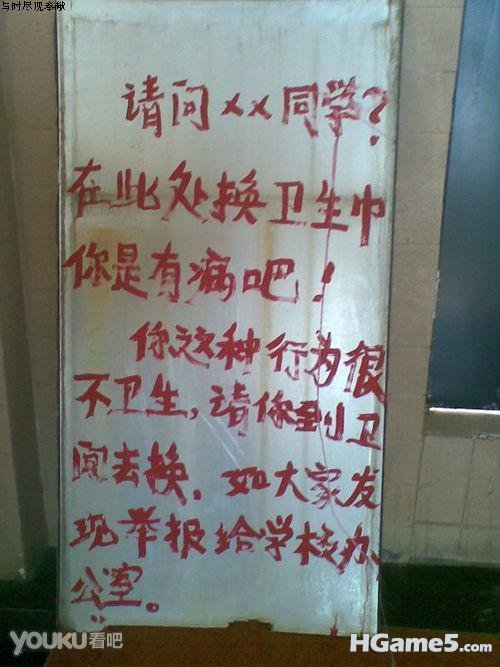 与时尽现奉献
请问××同学?
在此处换卫生巾
你是有病吧!
你这种行为很
不卫生,请你到卫
间去换,如大家发
现举报给学校办
公室。
YOUKU看吧
HGame5.com